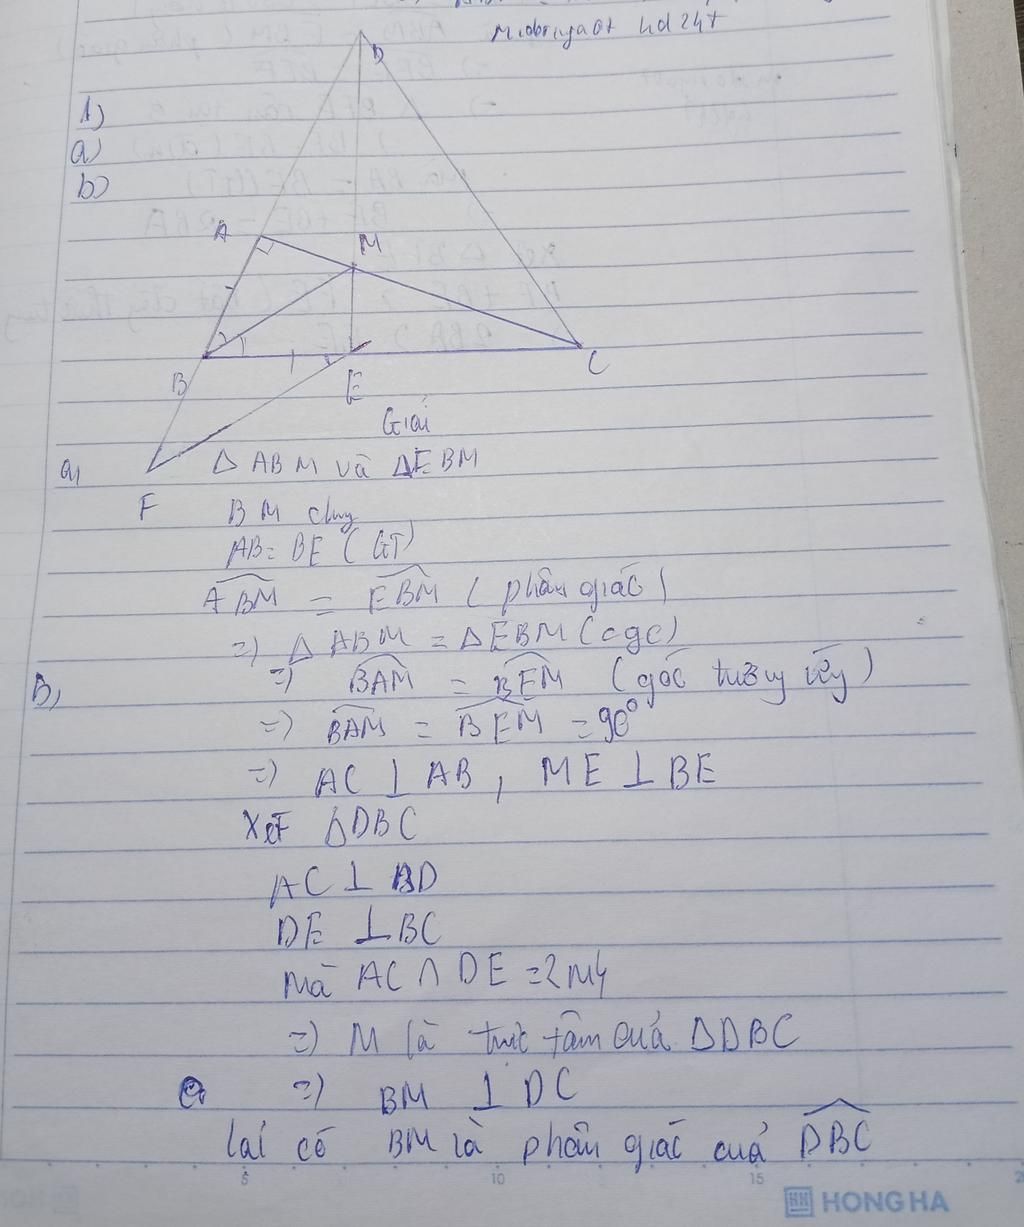 1)
a)
b)
D
A
M
B
E
C
F
Giải
a, △ ABM và △EBM
BM chung
AB = BE (GT)
ABM = EBM (phân giác)
=) △ ABM = △EBM (cgc)
B, =) BAM = BEM (góc tương ứng)
=) BAM = BEM = 90°
=) AC ⊥ AB, ME ⊥ BE
Xét △DBC
AC ⊥ BD
DE ⊥ BC
Mà AC ∩ DE = {M}
=) M là trực tâm của △DBC
=) BM ⊥ DC
lại có BM là phân giác của DBC
5 10 15
HONG HA